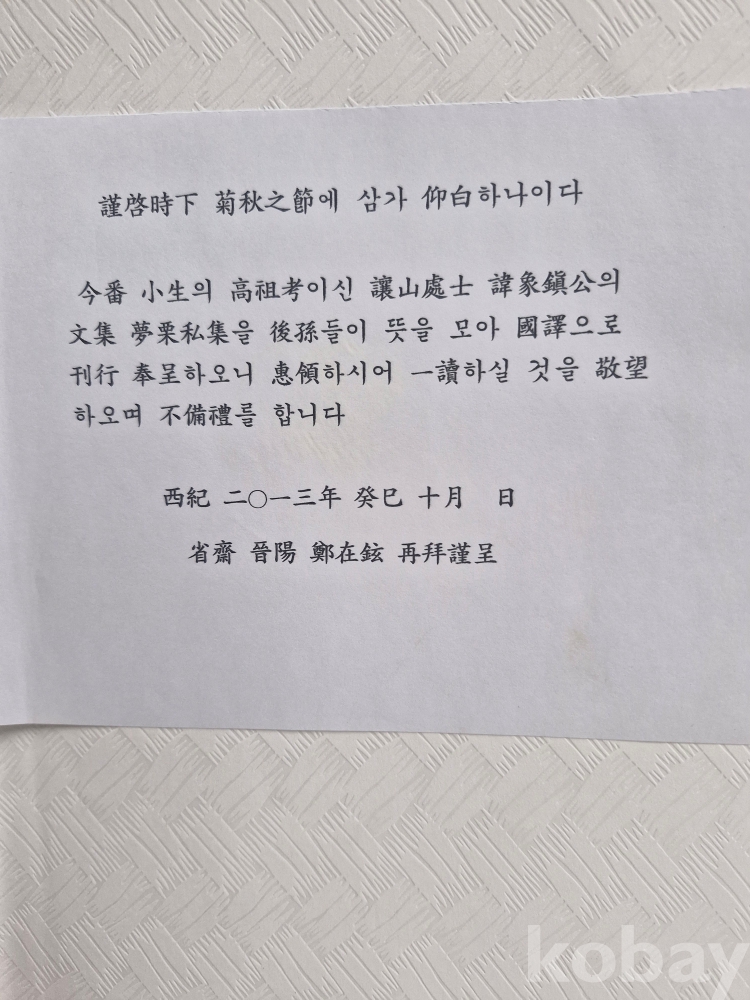 謹啓時下 菊秋之節에 삼가 仰白하나이다
今番 小生의 高祖考이신 讓山處士 諱象鎭公의
文集 夢栗私集을 後孫들이 뜻을 모아 國譯으로
刊行 奉呈하오니 惠領하시어 一讀하실 것을 敬望
하오며 不備禮를 합니다
西紀 二○一三年 癸巳 十月 日
省齋 晉陽 鄭在鉉 再拜謹呈
kobay